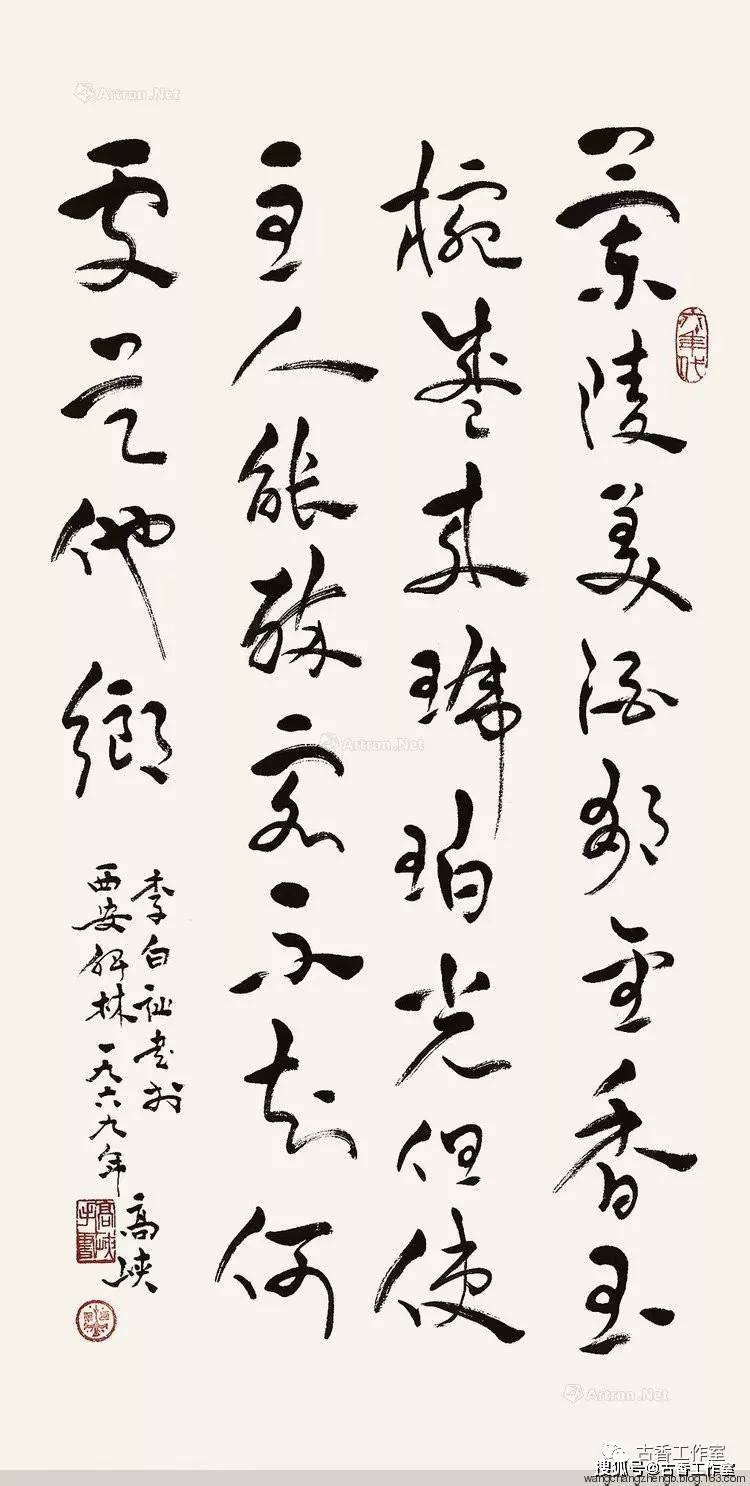 蘭陵美酒鬱金香玉
椀盛來琥珀光但使
主人能醉客不知何
處是他鄉
李白詩書於
西安碑林一九六九年
高峽
六十年代
高峽手書
Artron.Net
Artron.Net
Artron.Net
古香工作室
搜狐号@古香工作室
wangchangzhengb.blog.163.com